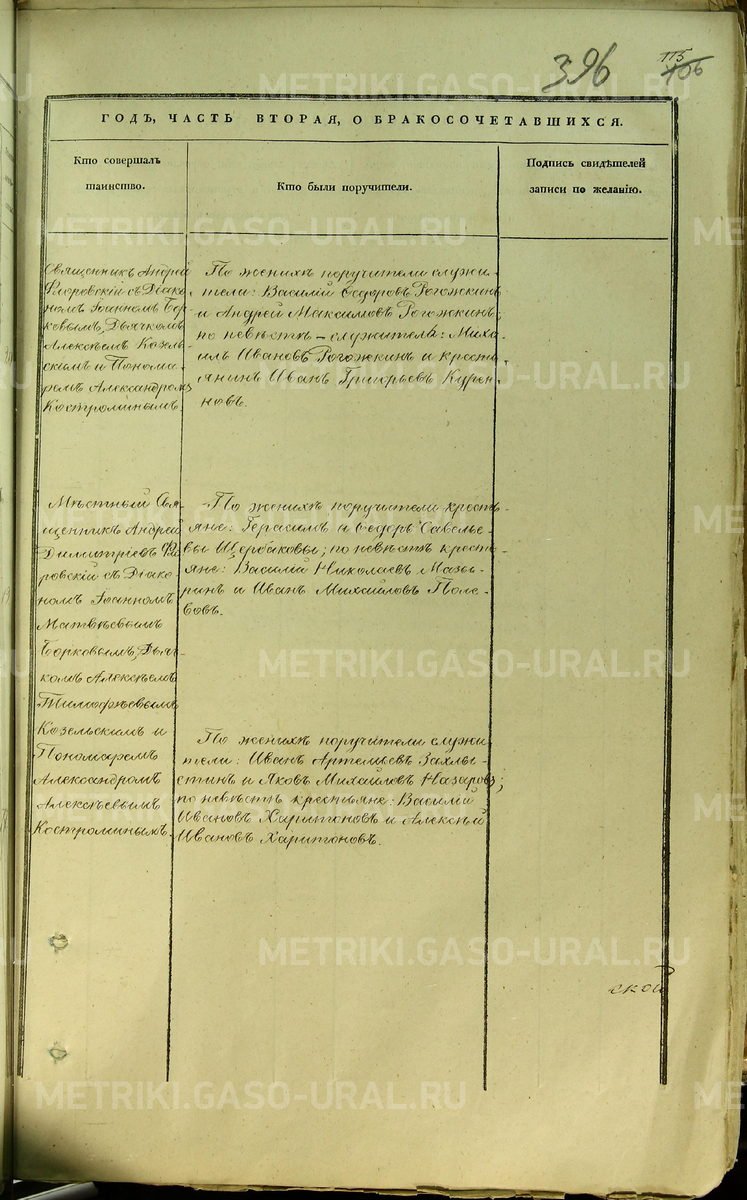 396
115
106
ГОДЪ, ЧАСТЬ ВТОРАЯ, О БРАКОСОЧЕТАВШИХСЯ.
Кто совершалъ
таинство.
Кто были поручители.
Подпись свидѣтелей
записи по желанію.
Священникъ Андрей
Флоровскій съ Діако
номъ Іоанномъ Бор
ковымъ, Дьячкомъ
Алексѣемъ Козель
скимъ и Понома
ремъ Александромъ
Костроминымъ.
По женихѣ поручители служи-
тели: Василій Ѳедоровъ Рогожкинъ
и Андрей Максимовъ Рогожкинъ;
по невѣстѣ – служитель: Миха
илъ Ивановъ Рогожкинъ и кресть
янинъ Иванъ Григорьевъ Курен
новъ.
Мѣстный Свя-
щенникъ Андрей
Димитріевъ Фло
ровскій съ Діако
номъ Іоанномъ
Матвѣевымъ
Борковымъ, Дьяч
комъ Алексѣемъ
Тимофѣевымъ
Козельскимъ и
Пономаремъ
Александромъ
Алексѣевымъ
Костроминымъ.
По женихѣ поручители кресть-
яне: Герасимъ и Ѳедоръ Савелье-
вы Щербаковы; по невѣстѣ кресть-
яне: Василій Николаевъ Мазы-
ринъ и Иванъ Михайловъ Поле-
вовъ.
По женихѣ поручители служи
тели: Иванъ Артемьевъ Захлы-
стинъ и Яковъ Михайловъ Назаровъ;
по невѣстѣ крестьяне: Василій
Ивановъ Харитоновъ и Алексѣй
Ивановъ Харитоновъ.
ской
METRIKI.GASO-URAL.RU
METRIKI.GASO-URAL.RU
METRIKI.GASO-URAL.RU
METRIKI.GASO-URAL.RU
METRIKI.GASO-URAL.RU
METRIKI.GASO-URAL.RU
METRIKI.GASO-URAL.RU
METRIKI.GASO-URAL.RU